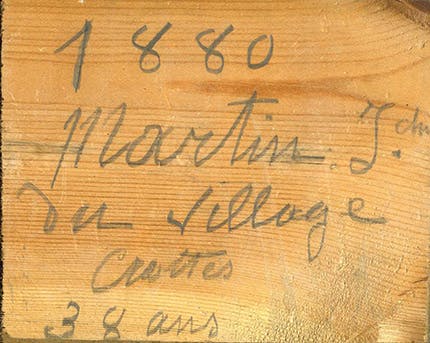 1880
Martin J.
du village
Crottes
38 ans